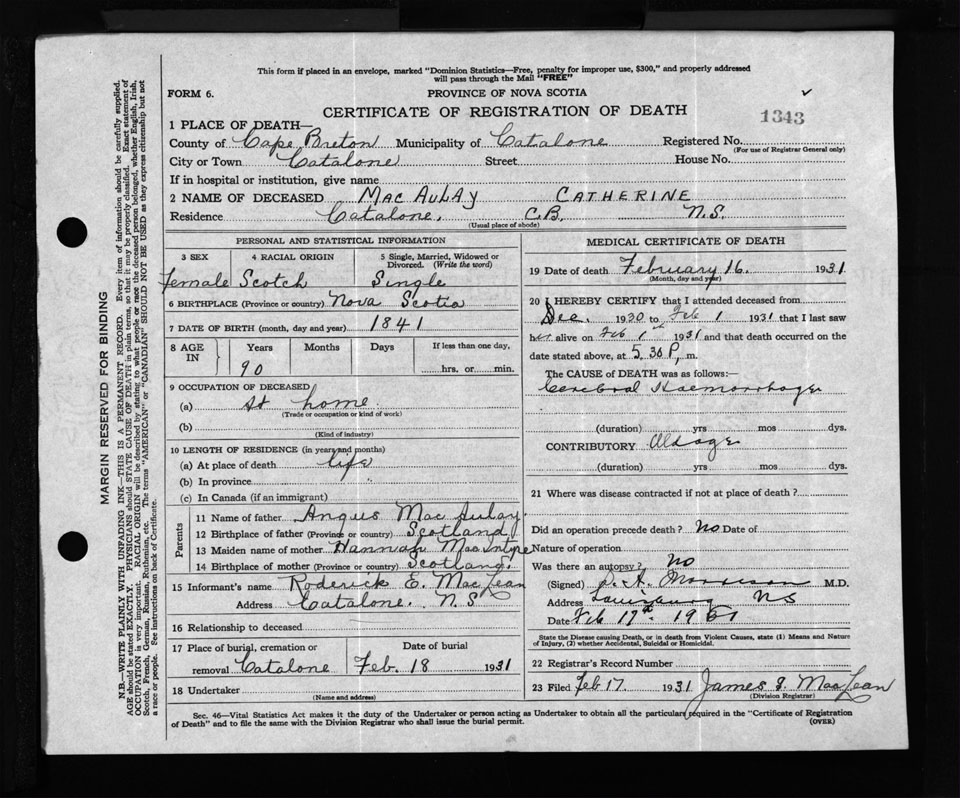 This form if placed in an envelope, marked "Dominion Statistics—Free, penalty for improper use, $300," and properly addressed
will pass through the Mail "FREE"
FORM 6.
PROVINCE OF NOVA SCOTIA
CERTIFICATE OF REGISTRATION OF DEATH
1343
1 PLACE OF DEATH—
County of Cape Breton Municipality of Catalone Registered No.
(For use of Registrar General only)
City or Town Catalone Street House No.
If in hospital or institution, give name
2 NAME OF DECEASED MacAulay Catherine
Residence Catalone. C.B. N.S.
(Usual place of abode)
PERSONAL AND STATISTICAL INFORMATION
3 SEX 4 RACIAL ORIGIN 5 Single, Married, Widowed or Divorced. (Write the word)
Female Scotch Single
6 BIRTHPLACE (Province or country) Nova Scotia
7 DATE OF BIRTH (month, day and year) 1841
8 AGE IN Years Months Days If less than one day,
90 hrs. or min.
9 OCCUPATION OF DECEASED
(a) at home
(Trade or occupation or kind of work)
(b)
(Kind of industry)
10 LENGTH OF RESIDENCE (in years and months)
(a) At place of death life
(b) In province "
(c) In Canada (if an immigrant)
Parents
11 Name of father Angus MacAulay
12 Birthplace of father (Province or country) Scotland
13 Maiden name of mother Hannah MacIntyre
14 Birthplace of mother (Province or country) Scotland.
15 Informant's name Roderick E. MacLean
Address Catalone. N.S
16 Relationship to deceased
17 Place of burial, cremation or removal Catalone
Date of burial
Feb. 18 1931
18 Undertaker
(Name and address)
MEDICAL CERTIFICATE OF DEATH
19 Date of death February 16. 1931
(Month, day and year)
20 I HEREBY CERTIFY that I attended deceased from
Dec. 1930 to Feb 1 1931 that I last saw
her alive on Feb 1st 1931 and that death occurred on the
date stated above, at 5.30 P. m.
The CAUSE OF DEATH was as follows:
Cerebral Haemorrhage
(duration) yrs mos dys.
CONTRIBUTORY Old age
(duration) yrs mos dys.
21 Where was disease contracted if not at place of death?
Did an operation precede death? No Date of
Nature of operation
Was there an autopsy? No
(Signed) Morrison M.D.
Address Louisburg NS
Date Feb 17th 1931
State the Disease causing Death, or in death from Violent Causes, state (1) Means and Nature
of Injury, (2) whether Accidental, Suicidal or Homicidal.
22 Registrar's Record Number
23 Filed Feb 17 1931 James J. MacLean
(Division Registrar)
Sec. 46—Vital Statistics Act makes it the duty of the Undertaker or person acting as Undertaker to obtain all the particulars required in the "Certificate of Registration
of Death" and to file the same with the Division Registrar who shall issue the burial permit.
(OVER)
MARGIN RESERVED FOR BINDING
N.B.—WRITE PLAINLY WITH UNFADING INK—THIS IS A PERMANENT RECORD. Every item of information should be carefully supplied.
AGE should be stated EXACTLY. PHYSICIANS should STATE CAUSE OF DEATH in plain terms, so that it may be properly classified. Exact statement of
OCCUPATION is very important. RACIAL ORIGIN will be described by stating to what people or race the deceased person belonged, whether English, Irish,
Scotch, French, German, Russian, Ruthenian, etc. The terms "AMERICAN" or "CANADIAN" SHOULD NOT BE USED as they express citizenship but not
a race or people. See instructions on back of Certificate.